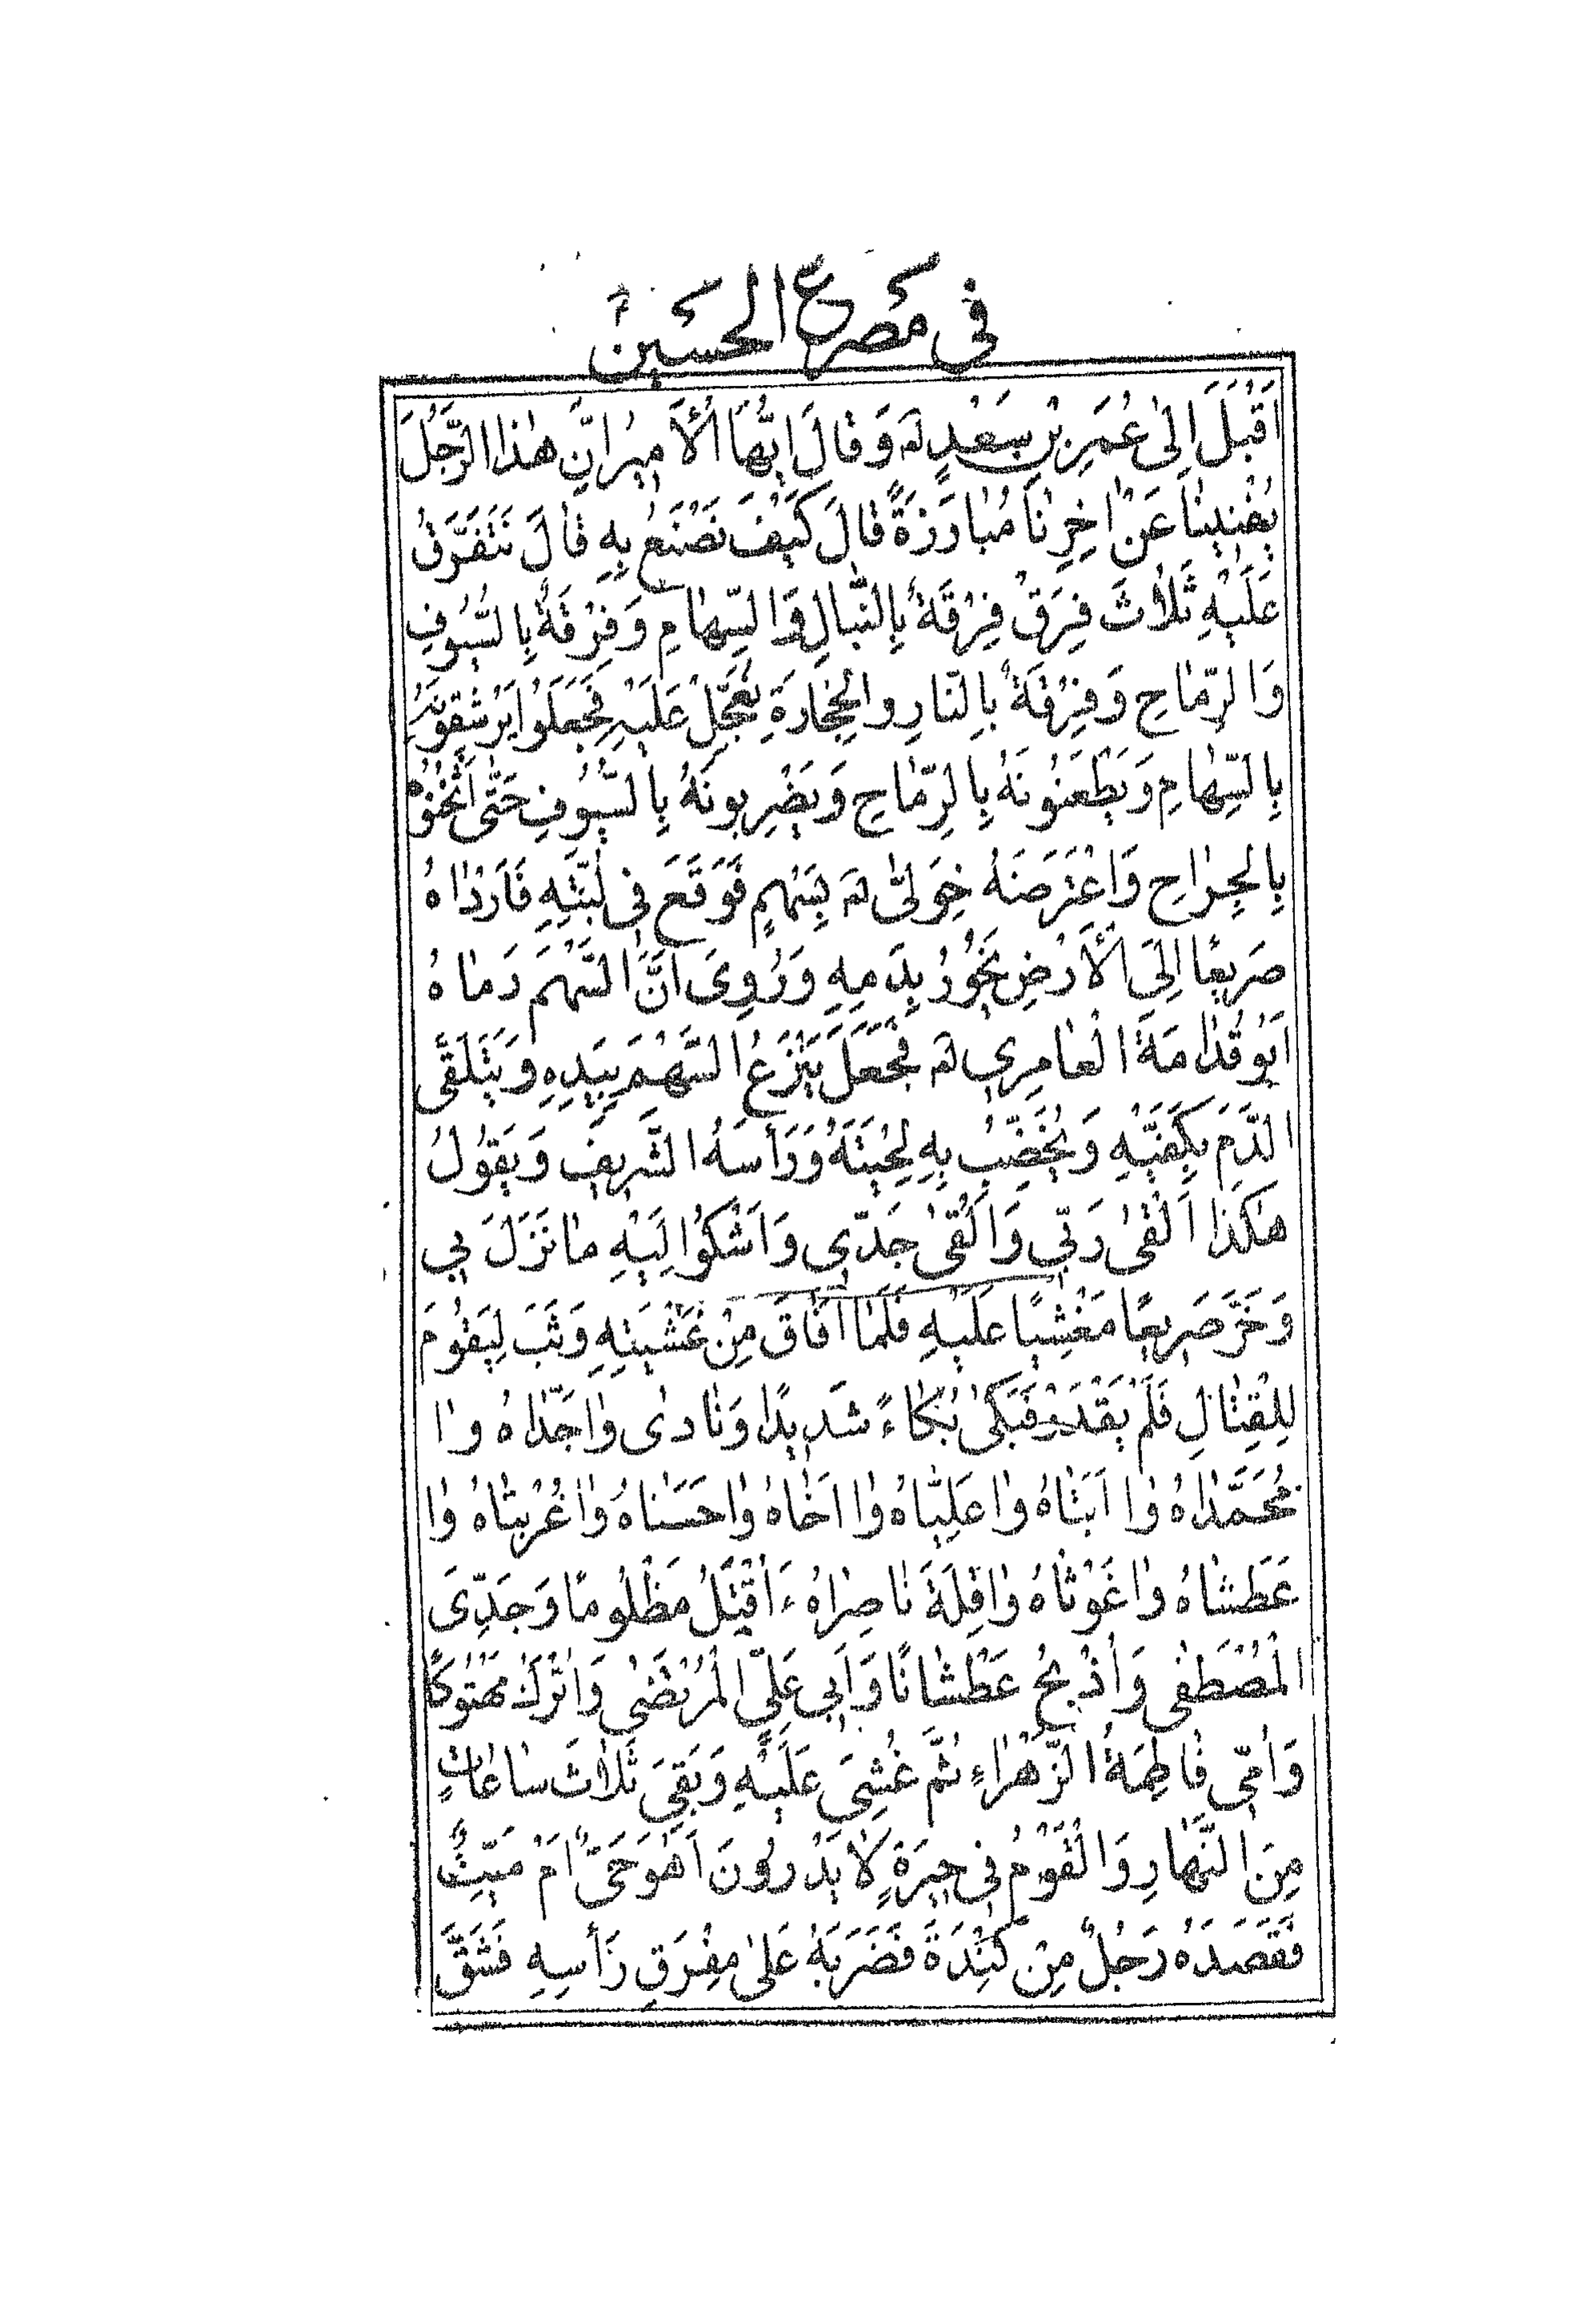 في مصرع الحسين
اَقْبَلَ اِلىٰ عُمَرِ بْنِ سَعْدٍ لَهُ وَ قالَ اَيُّهَا الْأَميرُ اِنَّ هٰذَا الرَّجُلَ
يُفْنينا عَنْ اٰخِرِنا مُبارَزَةً قالَ كَيْفَ نَصْنَعُ بِهِ قالَ نَتَفَرَّقُ
عَلَيْهِ ثَلاٰثَ فِرَقٍ فِرْقَةٌ بِالنِّبالِ وَ السِّهامِ وَ فِرْقَةٌ بِالسُّيُوفِ
وَ الرِّماحِ وَ فِرْقَةٌ بِالنّارِ و الْحِجارَةِ نُعَجِّلُ عَلَيْهِ فَجَعَلُوا يَرْشِقُونَهُ
بِالسِّهامِ وَ يَطْعَنُونَهُ بِالرِّماحِ وَ يَضْرِبونَهُ بِالسُّيُوفِ حَتّىٰ اَثْخَنُوهُ
بِالْجِراحِ وَ اعْتَرَضَهُ خِوَلىّٰ لَهُ بِسَهْمٍ فَوَقَعَ في لَبَّتِهِ فَاَرْداهُ
صَريعًا اِلَى الْأَرْضِ يَخُورُ بِدَمِهِ وَ رُوِىَ اَنَّ السَّهْمَ رَماهُ
اَبُو قُدامَةَ الْعامِرِي لَهُ فَجَعَلَ يَنْزَعُ السَّهْمَ بِيَدِهِ وَ يَتَلَقّىٰ
الدَّمَ بِكَفَّيْهِ وَ يُخَضِّبُ بِهِ لِحْيَتَهُ وَ رَأْسَهُ الشَّريفَ وَ يَقُولُ
هٰكَذا اَلْقىٰ رَبّي وَ اَلْقىٰ جَدّي وَ اَشْكُوا لِيَهِ ما نَزَلَ بي
وَ خَرَّ صَريعًا مَغْشِيًا عَلَيْهِ فَلَمّا اَفاقَ مِنْ غَشْيَتِهِ وَثَبَ لِيَقُومَ
لِلْقِتالِ فَلَمْ يَقْدَرْ فَبَكىٰ بُكاءً شَديدًا وَ نادىٰ وا جَدّاهُ وا
مُحَمَّداهُ وا اَبَتاهُ وا عَلِيّاهُ وا اَخاهُ وا حَسَناهُ وا غُرْبَتاهُ وا
عَطَشاهُ وا غَوْثاهُ وا قِلَّةَ ناصِراهُ ءَاُقْتَلُ مَظْلُومًا وَ جَدِّىَ
الْمُصْطَفىٰ وَ اُذْبَحُ عَطْشانًا وَ اَبي عَلِيٌّ الْمُرْتَضىٰ وَ اُتْرَكُ مَهْتُوكًا
وَ اُمّي فاطِمَةُ الزَّهْراءِ ثُمَّ غُشِيَ عَلَيْهِ وَ بَقِيَ ثَلاٰثَ ساعاتٍ
مِنَ النَّهارِ وَ الْقَوْمُ في حيرَةٍ لا يَدْرُونَ اَهُوَ حَيٌّ اَمْ مَيِّتٌ
فَقَصَدَهُ رَجُلٌ مِنْ كِنْدَةَ فَضَرَبَهُ عَلىٰ مِفْرَقِ رَأسِهِ فَشَقَّ